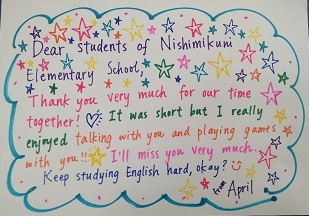 Dear, students of Nishimikuni
Elementary School,
Thank you very much for our time
together! It was short but I really
enjoyed talking with you and playing games
with you!! I'll miss you very much.
Keep studying English hard, okay?
from April